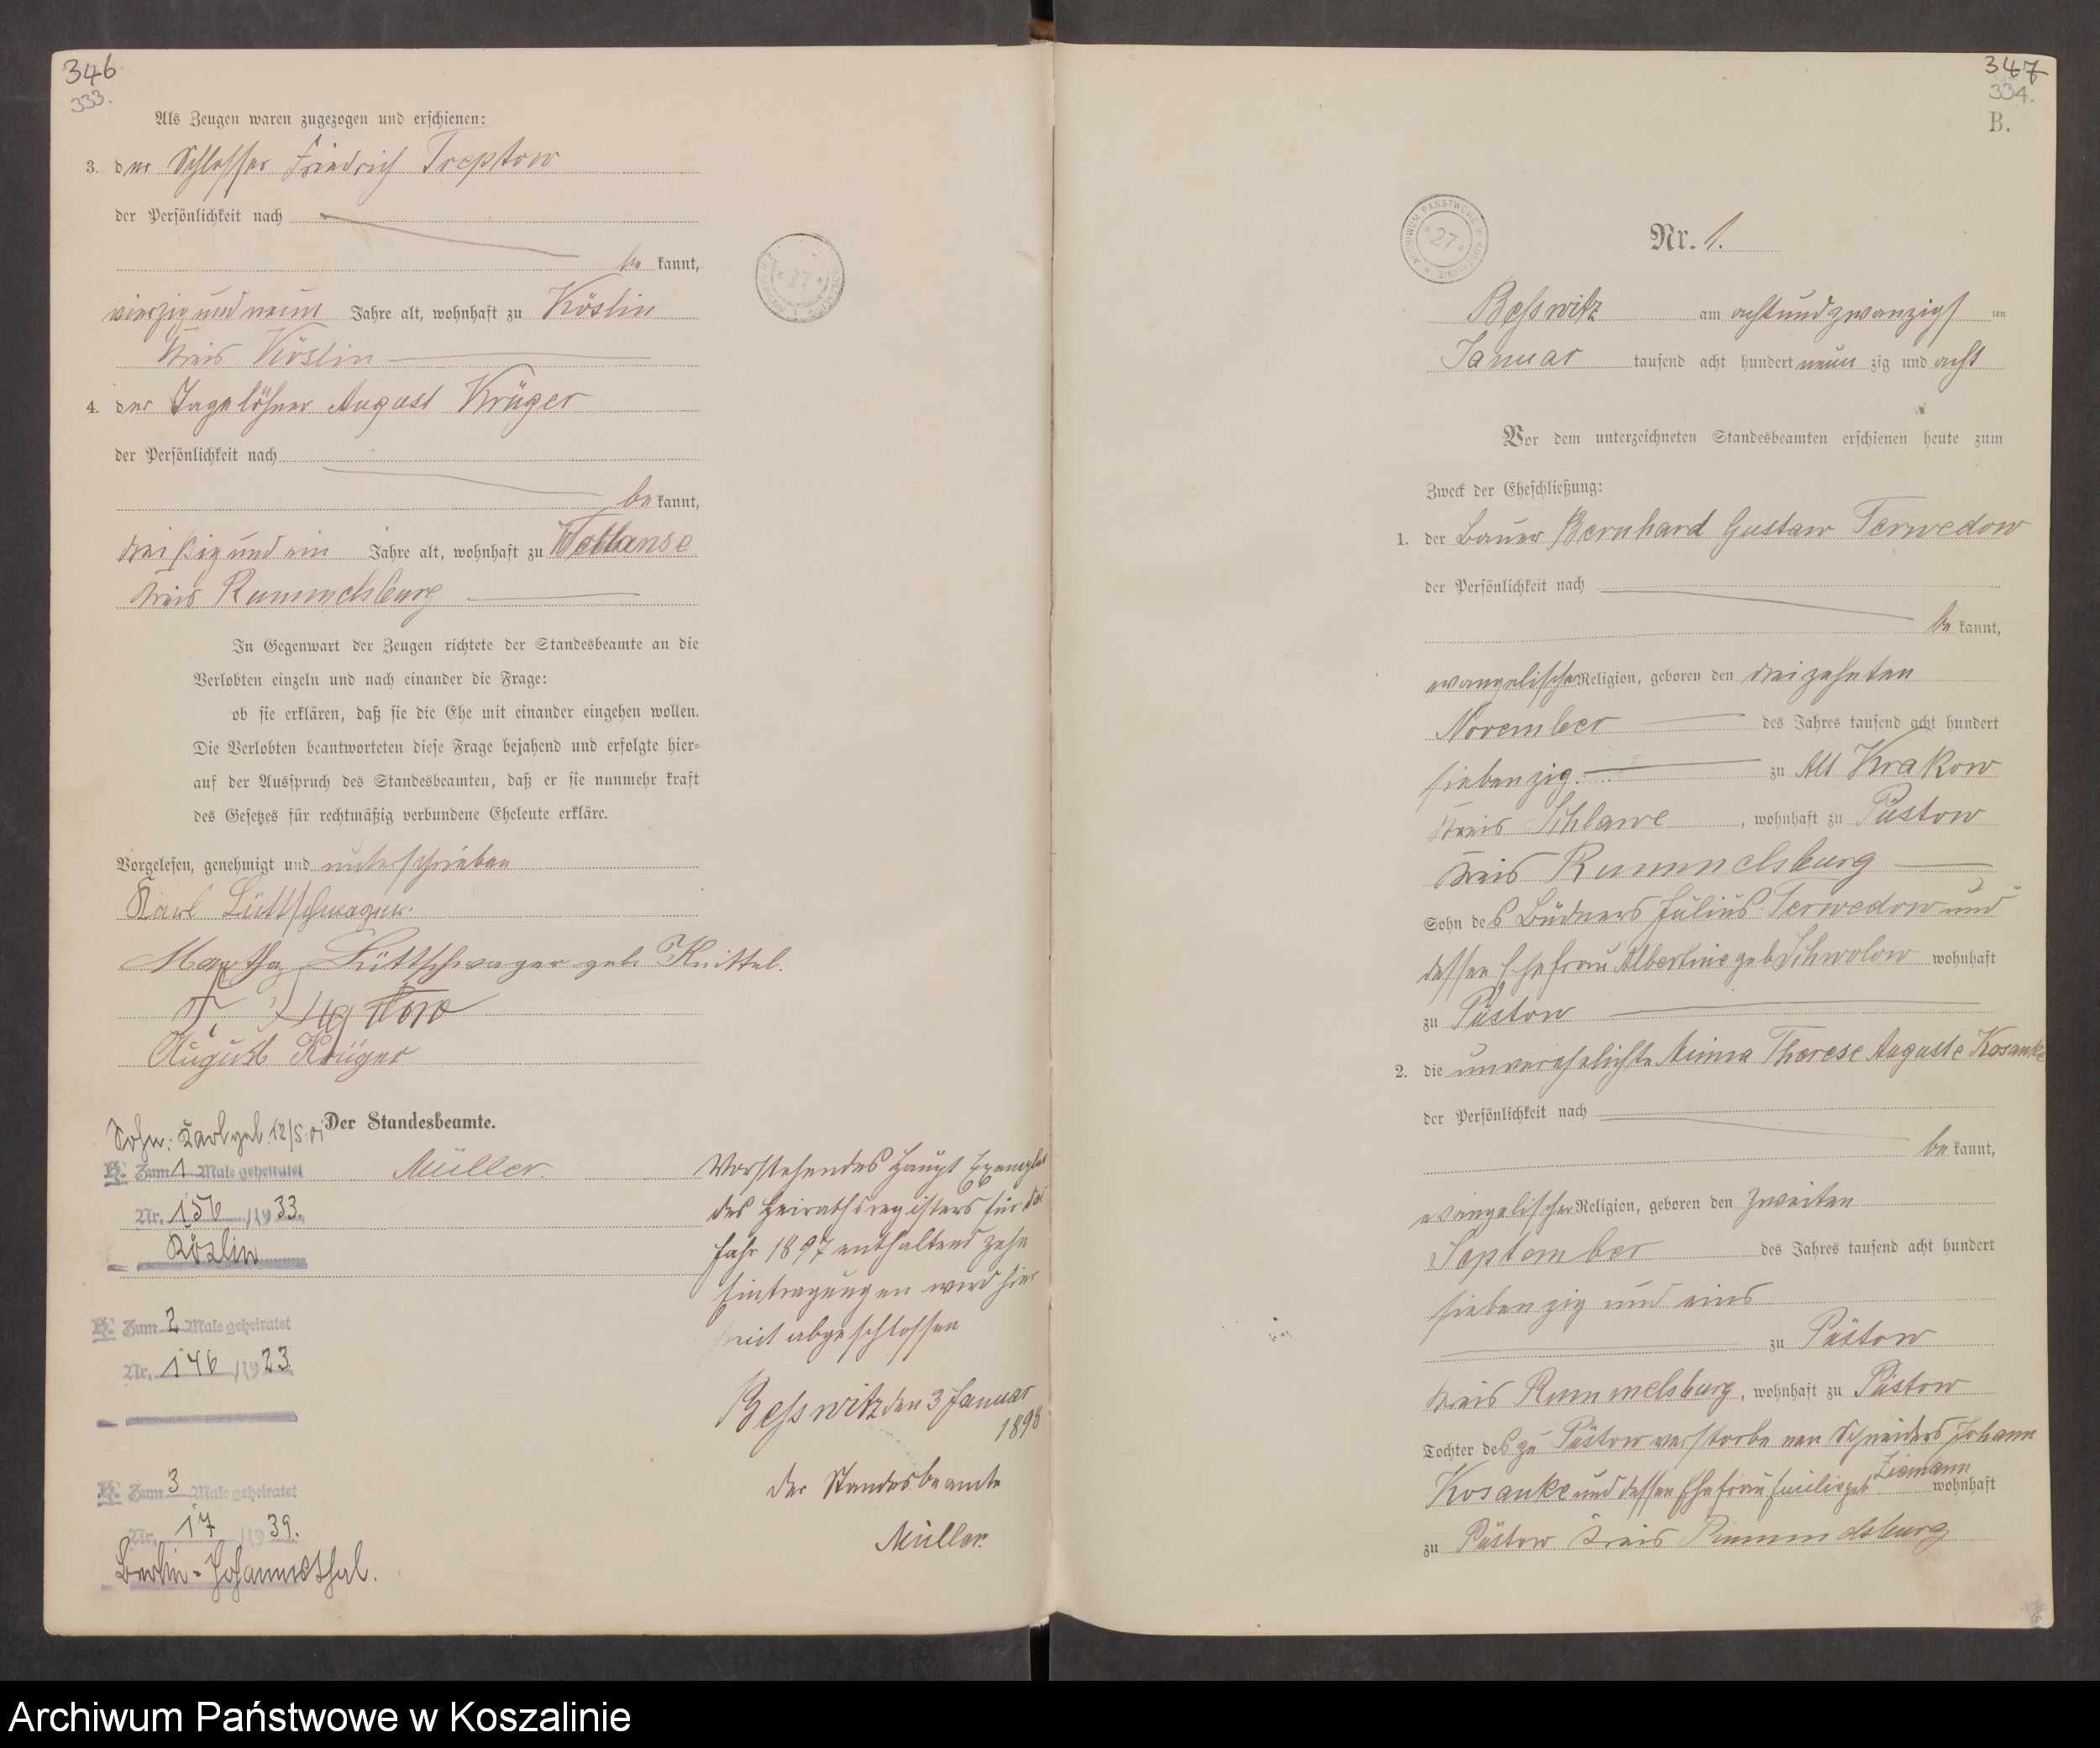 346
333.
Als Zeugen waren zugezogen und erschienen:
3. der Schlosser Friedrich Treptow
der Persönlichkeit nach
be kannt,
vierzig und neun Jahre alt, wohnhaft zu Köslin
Kreis Köslin
4. der Tagelöhner August Krüger
der Persönlichkeit nach
be kannt,
dreißig und ein Jahre alt, wohnhaft zu
Kreis Rummelsburg
In Gegenwart der Zeugen richtete der Standesbeamte an die
Verlobten einzeln und nach einander die Frage:
ob sie erklären, daß sie die Ehe mit einander eingehen wollen.
Die Verlobten beantworteten diese Frage bejahend und erfolgte hier-
auf der Ausspruch des Standesbeamten, daß er sie nunmehr kraft
des Gesetzes für rechtmäßig verbundene Eheleute erkläre.
Vorgelesen, genehmigt und unterschrieben
Karl Lüttschwager.
Martha Lüttschwager geb. Knittel.
F. Treptow
August Krüger
Der Standesbeamte.
Müller.
Sohn: Karl geb. 12/5. 01
K. Zum 1 Male geheiratet
Nr. 156 /19 33.
Köslin
K. Zum 2 Male geheiratet
Nr. 146 /19 23
K. Zum 3 Male geheiratet
Nr. 17 /19 39.
Berlin-Johannisthal.
Vorstehendes Haupt Exemplar
des Heirathsregisters für das
Jahr 1897 enthaltend zehn
Eintragungen wird hier
mit abgeschlossen
Besswitz den 3 Januar
1898
Der Standesbeamte
Müller.
347
334.
B.
ARCHIWUM PAŃSTWOWE * KOSZALINIE *
* 27 *
Nr. 1.
Besswitz am achtundzwanzigsten
Januar tausend acht hundert neun zig und acht
Vor dem unterzeichneten Standesbeamten erschienen heute zum
Zweck der Eheschließung:
1. der Bauer Bernhard Gustav Terwedow
der Persönlichkeit nach
be kannt,
evangelischer Religion, geboren den dreizehnten
November des Jahres tausend acht hundert
siebenzig zu Alt Krakow
Kreis Schlawe, wohnhaft zu Püstow
Kreis Rummelsburg
Sohn des Büdners Julius Terwedow und
dessen Ehefrau Albertine geb Schwolow wohnhaft
zu Püstow
2. die unverehelichte Minna Therese Auguste Kosanke
der Persönlichkeit nach
be kannt,
evangelischer Religion, geboren den zweiten
September des Jahres tausend acht hundert
siebenzig und eins
zu Püstow
Kreis Rummelsburg, wohnhaft zu Püstow
Tochter des zu Püstow verstorbenen Schneiders Johann
Kosanke und dessen Ehefrau Emilie geb Ziemann wohnhaft
zu Püstow Kreis Rummelsburg
Archiwum Państwowe w Koszalinie